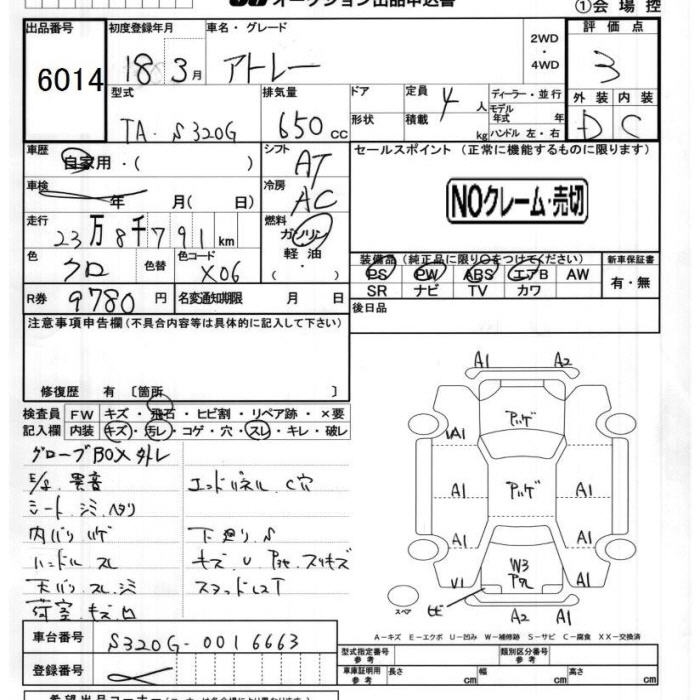 オークション出品申込書 ①会場控
出品番号 初度登録年月 車名・グレード 2WD・4WD 評価点
6014 18 3月 アトレー 3
型式 排気量 ドア 定員 4人 ディーラー・並行 外装 内装
TA-S320G 650cc 形状 積載 kg モデル年式 年 D C
ハンドル 左・右
車歴 自家用・( ) シフト AT セールスポイント (正常に機能するものに限ります)
車検 年 月( 日) 冷房 AC NOクレーム・売切
走行 23万8千791km 燃料 ガソリン
色 クロ 色替 色コード X06 軽油・( )
装備品(純正品に限り○をつけてください) 新車保証書
PS PW ABS エアB AW 有・無
SR ナビ TV カワ
R券 9780円 名変通知期限 月 日 後日品
注意事項申告欄(不具合内容等は具体的に記入して下さい)
修復歴 有 〔箇所 〕
検査員 FW キズ・飛石・ヒビ割・リペア跡・×要
記入欄 内装 キズ・汚レ・コゲ・穴・スレ・キレ・破レ
グローブBOX外レ
E/g 異音 エンドパネル C穴
シート シミ ヘタリ
内バリ ハゲ 下廻り S
ハンドル スレ キズ U
天バリ スレ シミ
荷室 キズ 凹
A1 A2
アハゲ
A1
A1 アハゲ A1
A1 A1
W3
V1 A1
スペア ヒビ A2 A1
A-キズ E-エクボ U-凹み W-補修跡 S-サビ C-腐食 XX-交換済
車台番号 S320G-0016663
登録番号
型式指定番号 参考 類別区分番号 参考
車庫証明用 参考 長さ cm 幅 cm 高さ cm
希望出品コーナー